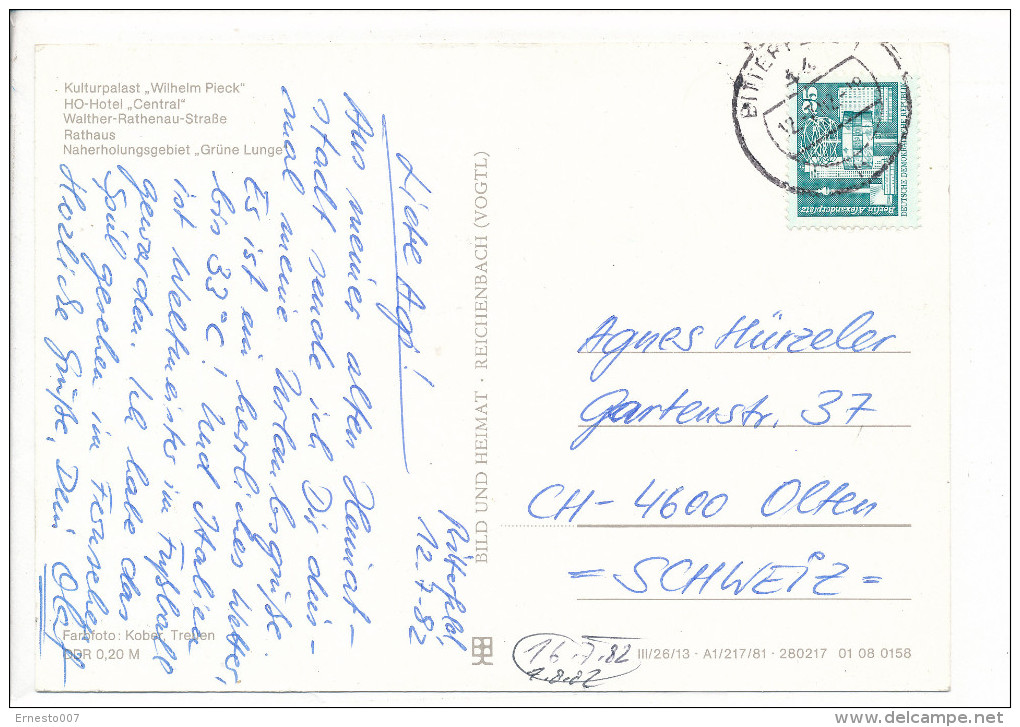 Kulturpalast „Wilhelm Pieck“
HO-Hotel „Central“
Walther-Rathenau-Straße
Rathaus
Naherholungsgebiet „Grüne Lunge“
Bitterfeld,
12.7.82
Liebe Agi!
Aus meiner alten Heimat-
stadt sende ich Dir dies-
mal meine Urlaubsgrüße.
Es ist ein herrliches Wetter,
bis 33°C! Und Italien
ist Weltmeister im Fußball
geworden. Ich habe das
Spiel gesehen im Fernsehen.
Herzliche Grüße, Dein Olaf
Farbfoto: Kober, Treuen
DDR 0,20 M
BILD UND HEIMAT · REICHENBACH (VOGTL)
BITTERF
25
Berlin, Alexanderplatz
DEUTSCHE DEMOKRATISCHE REPUBLIK
Agnes Hürzeler
Gartenstr. 37
CH-4600 Olten
=SCHWEIZ=
16.7.82
1.8.82
III/26/13 · A1/217/81 · 280217 01 08 0158
Ernesto007
www.delcampe.net